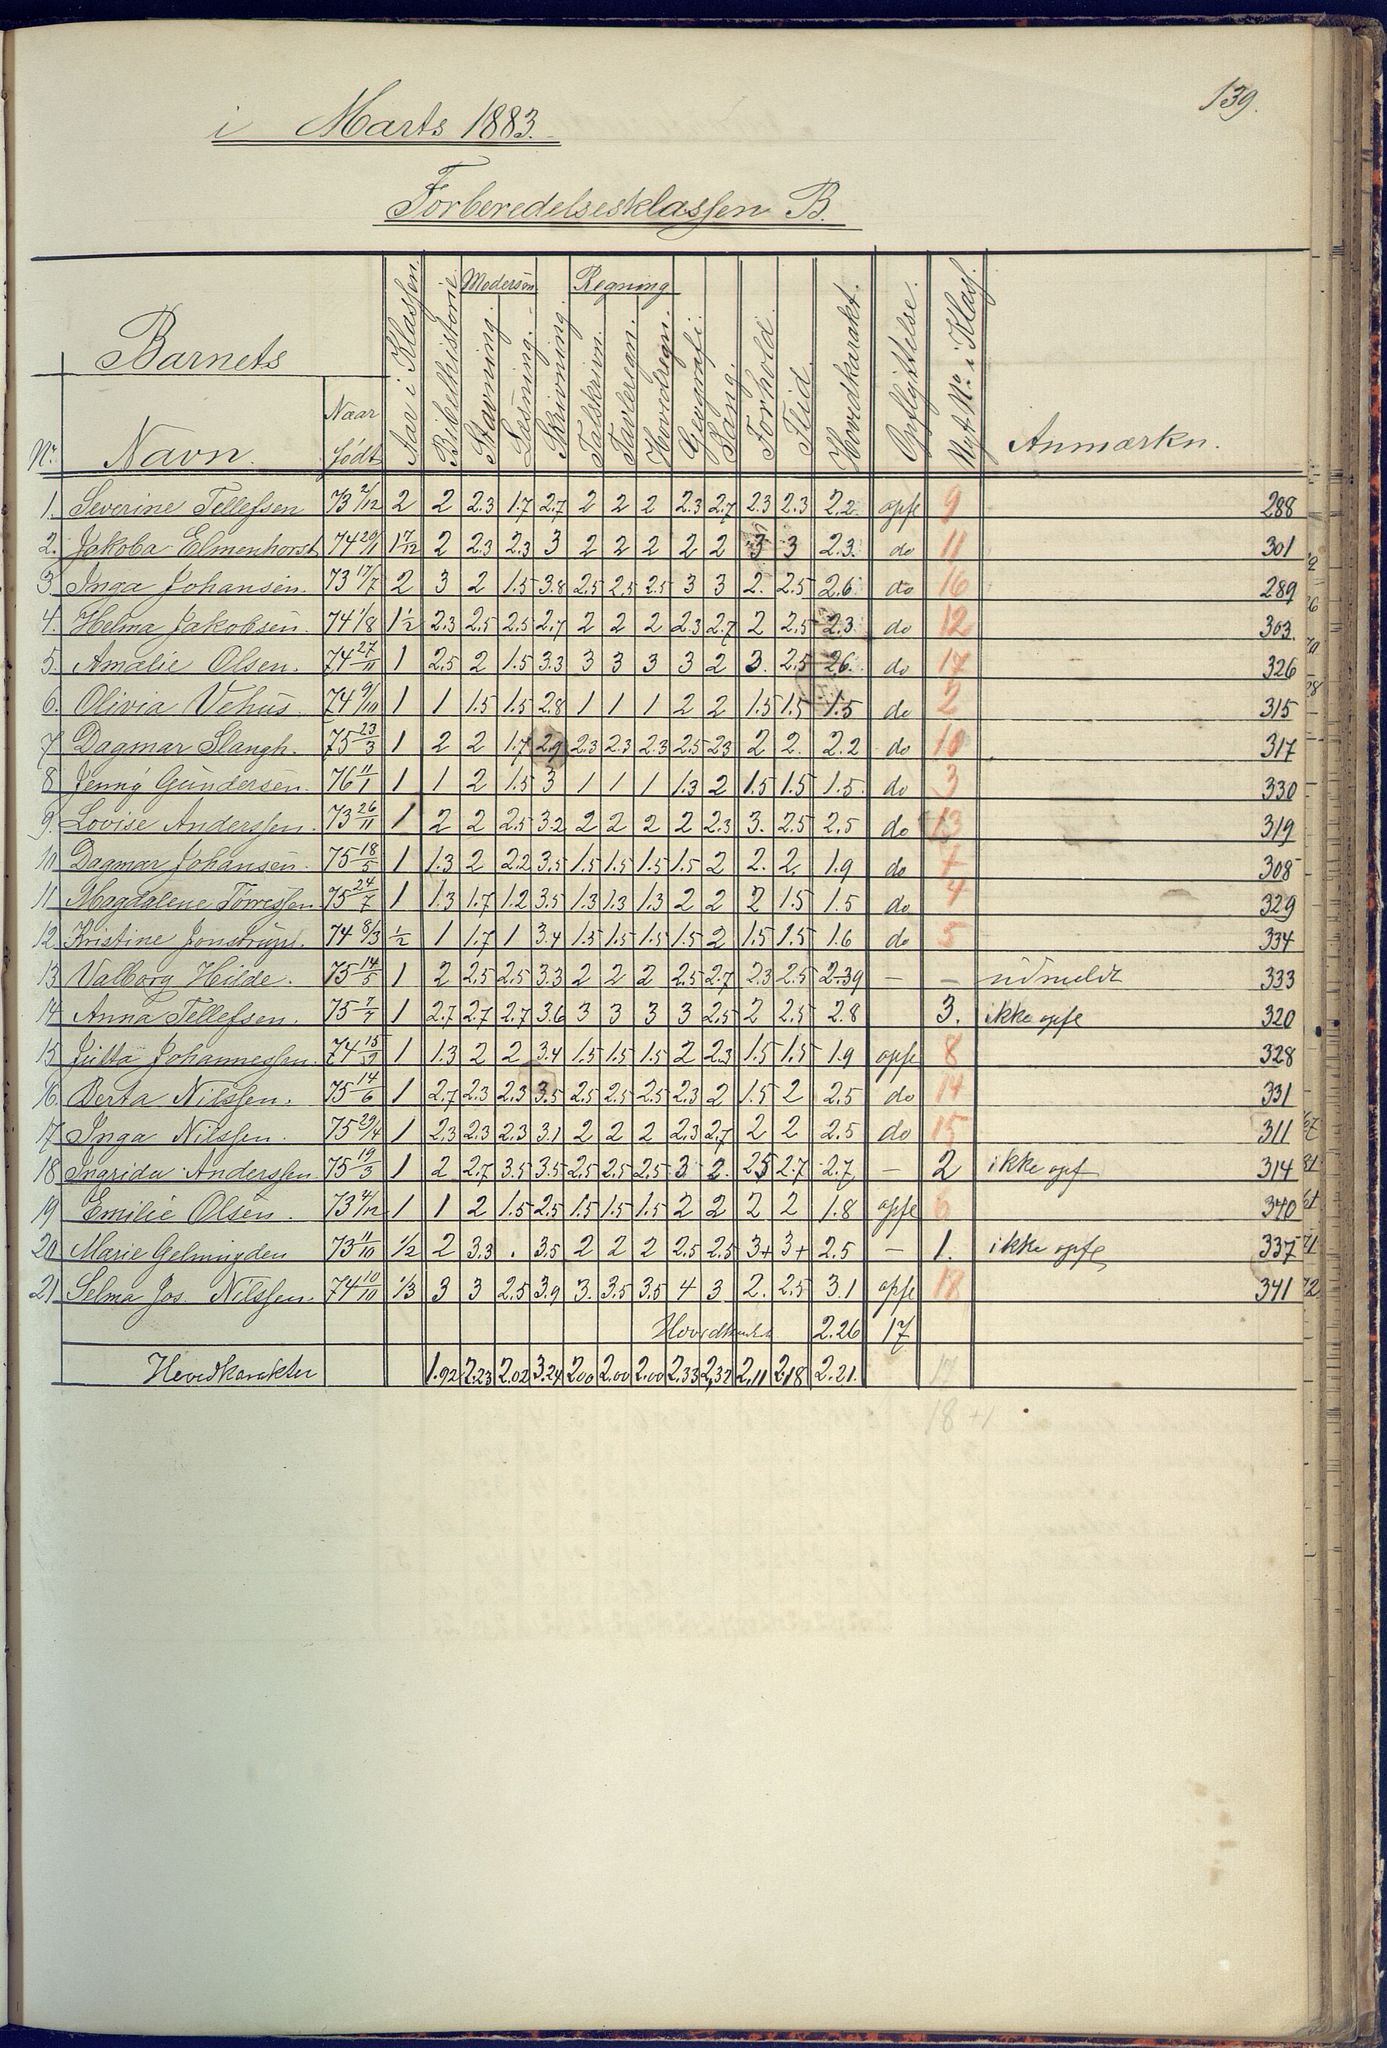 139.
i Marts 1883.
Forberedelsesklassen B.
Nr. Barnets Navn. Naar født Aar i Klassen. Bibelhistorie. Modersm. Stavning. Læsning. Skrivning. Regning Talskrivn. Tavleregn. Hovedregn. Geografi. Sang. Forhold. Flid. Hovedkarakt. Opflyttelse. Nyt No. i Klass. Anmærkn.
1. Severine Tellefsen 73 2/12 2 2 2.3 1.7 2.7 2 2 2 2.3 2.7 2.3 2.3 2.2 opfl 9 288
2. Jakoba Elmenhorst 74 20/11 1 7/12 2 2.3 2.3 3 2 2 2 2 2 3 3 2.3. do 11 301
3. Inga Johansen. 73 17/7 2 3 2 1.5 3.8 2.5 2.5 2.5 3 3 2. 2.5 2.6 do 16 289
4. Helma Jakobsen. 74 1/8 1 1/2 2.3 2.5 2.5 2.7 2 2 2 2.3 2.7 2 2.5 2.3. do 12 303.
5. Amalie Olsen. 74 27/11 1 2.5 2 1.5 3.3 3 3 3 3 2 3. 2.5 26. do 17 326
6. Olivia Vehus 74 9/10 1 1 1.5 1.5 2.8 1 1 1 2 2 1.5 1.5 1.5 do 2 315
7 Dagmar Slangh. 75 23/3 1 2 2 1.7 2.9 2.3 2.3 2.3 2.5 23 2 2. 2.2 do 10 317
8 Jenny Gundersen. 76 11/1 1 1 2 1.5 3 1 1 1 1.3 2 1.5 1.5 1.5. do 3 330
9. Lovise Anderssen. 73 26/11 1 2 2 2.5 3.2 2 2 2 2 2.3 3. 2.5 2.5 do 13 319
10. Dagmar Johansen. 75 18/5 1 1.3 2 2.2 3.5 1.5 1.5 1.5 1.5 2 2. 2. 1.9 do 308
11 Magdalene Törressen. 75 24/7 1 1.3 1.7 1.2 3.5 1.3 1.3 1.3 2 2 2 1.5 1.5 do 4 329
12 Kristine Jonstrup. 74 8/3 1/2 1 1.7 1 3.4 1.5 1.5 1.5 1.5 2 1.5 1.5 1.6 do 5 334
13 Valborg Hilde. 75 14/5 1 2 2.5 2.5 3.3 2 2 2 2.5 2.7 2.3 2.5 2.39 — — udmeldt 333
14 Anna Tellefsen. 75 7/7 1 2.7 2.7 2.7 3.6 3 3 3 3 2.5 2 2.5 2.8 3. ikke opfl 320
15 Jutta Johannessen. 74 15/9 1 1.3 2 2 3.4 1.5 1.5 1.5 2 2.3 1.5 1.5 1.9 opfl 8 328
16. Berta Nilssen. 75 14/6 1 2.7 2.3 2.3 3.5 2.5 2.5 2.5 2.3 2 1.5 2 2.5 do 14 331
17 Inga Nilssen. 75 29/4 1 2.3 2.3 2.3 3.1 2 2 2 2.3 2.7 2 2 2.5 do 15 311
18 Ingrida Anderssen 75 19/3 1 2 2.7 3.5 3.5 2.5 2.5 2.5 3 2. 25 2.7 2.7 — 2 ikke opf 314
19 Emilie Olsen. 73 4/12 1 1 2 1.5 2.5 1.5 1.5 1.5 2 2 2 2 1.8 opfl 6 340
20 Marie Gelmingden 73 11/10 1/2 2 3.3 . 3.5 2 2 2 2.5 2.5 3+ 3+ 2.5 — 1. ikke opfl 337
21 Selma Jos. Nilssen. 74 10/10 1/3 3 3 2.5 3.9 3. 3.5 3.5 4 3 2. 2.5 3.1 opfl 18 341
2.26 17
Hovedkarakter 1.92 2.23 2.02 3.24 2.00 2.00 2.00 2.33 2,32 2,11 2,18 2.21. 17
18 +1